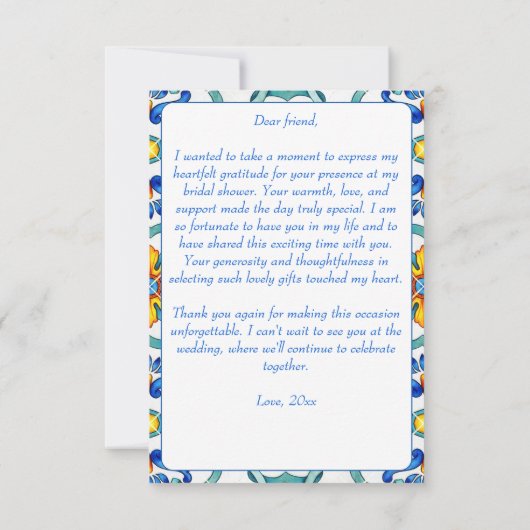 Dear friend,
I wanted to take a moment to express my
heartfelt gratitude for your presence at my
bridal shower. Your warmth, love, and
support made the day truly special. I am
so fortunate to have you in my life and to
have shared this exciting time with you.
Your generosity and thoughtfulness in
selecting such lovely gifts touched my heart.
Thank you again for making this occasion
unforgettable. I can't wait to see you at the
wedding, where we'll continue to celebrate
together.
Love, 20xx